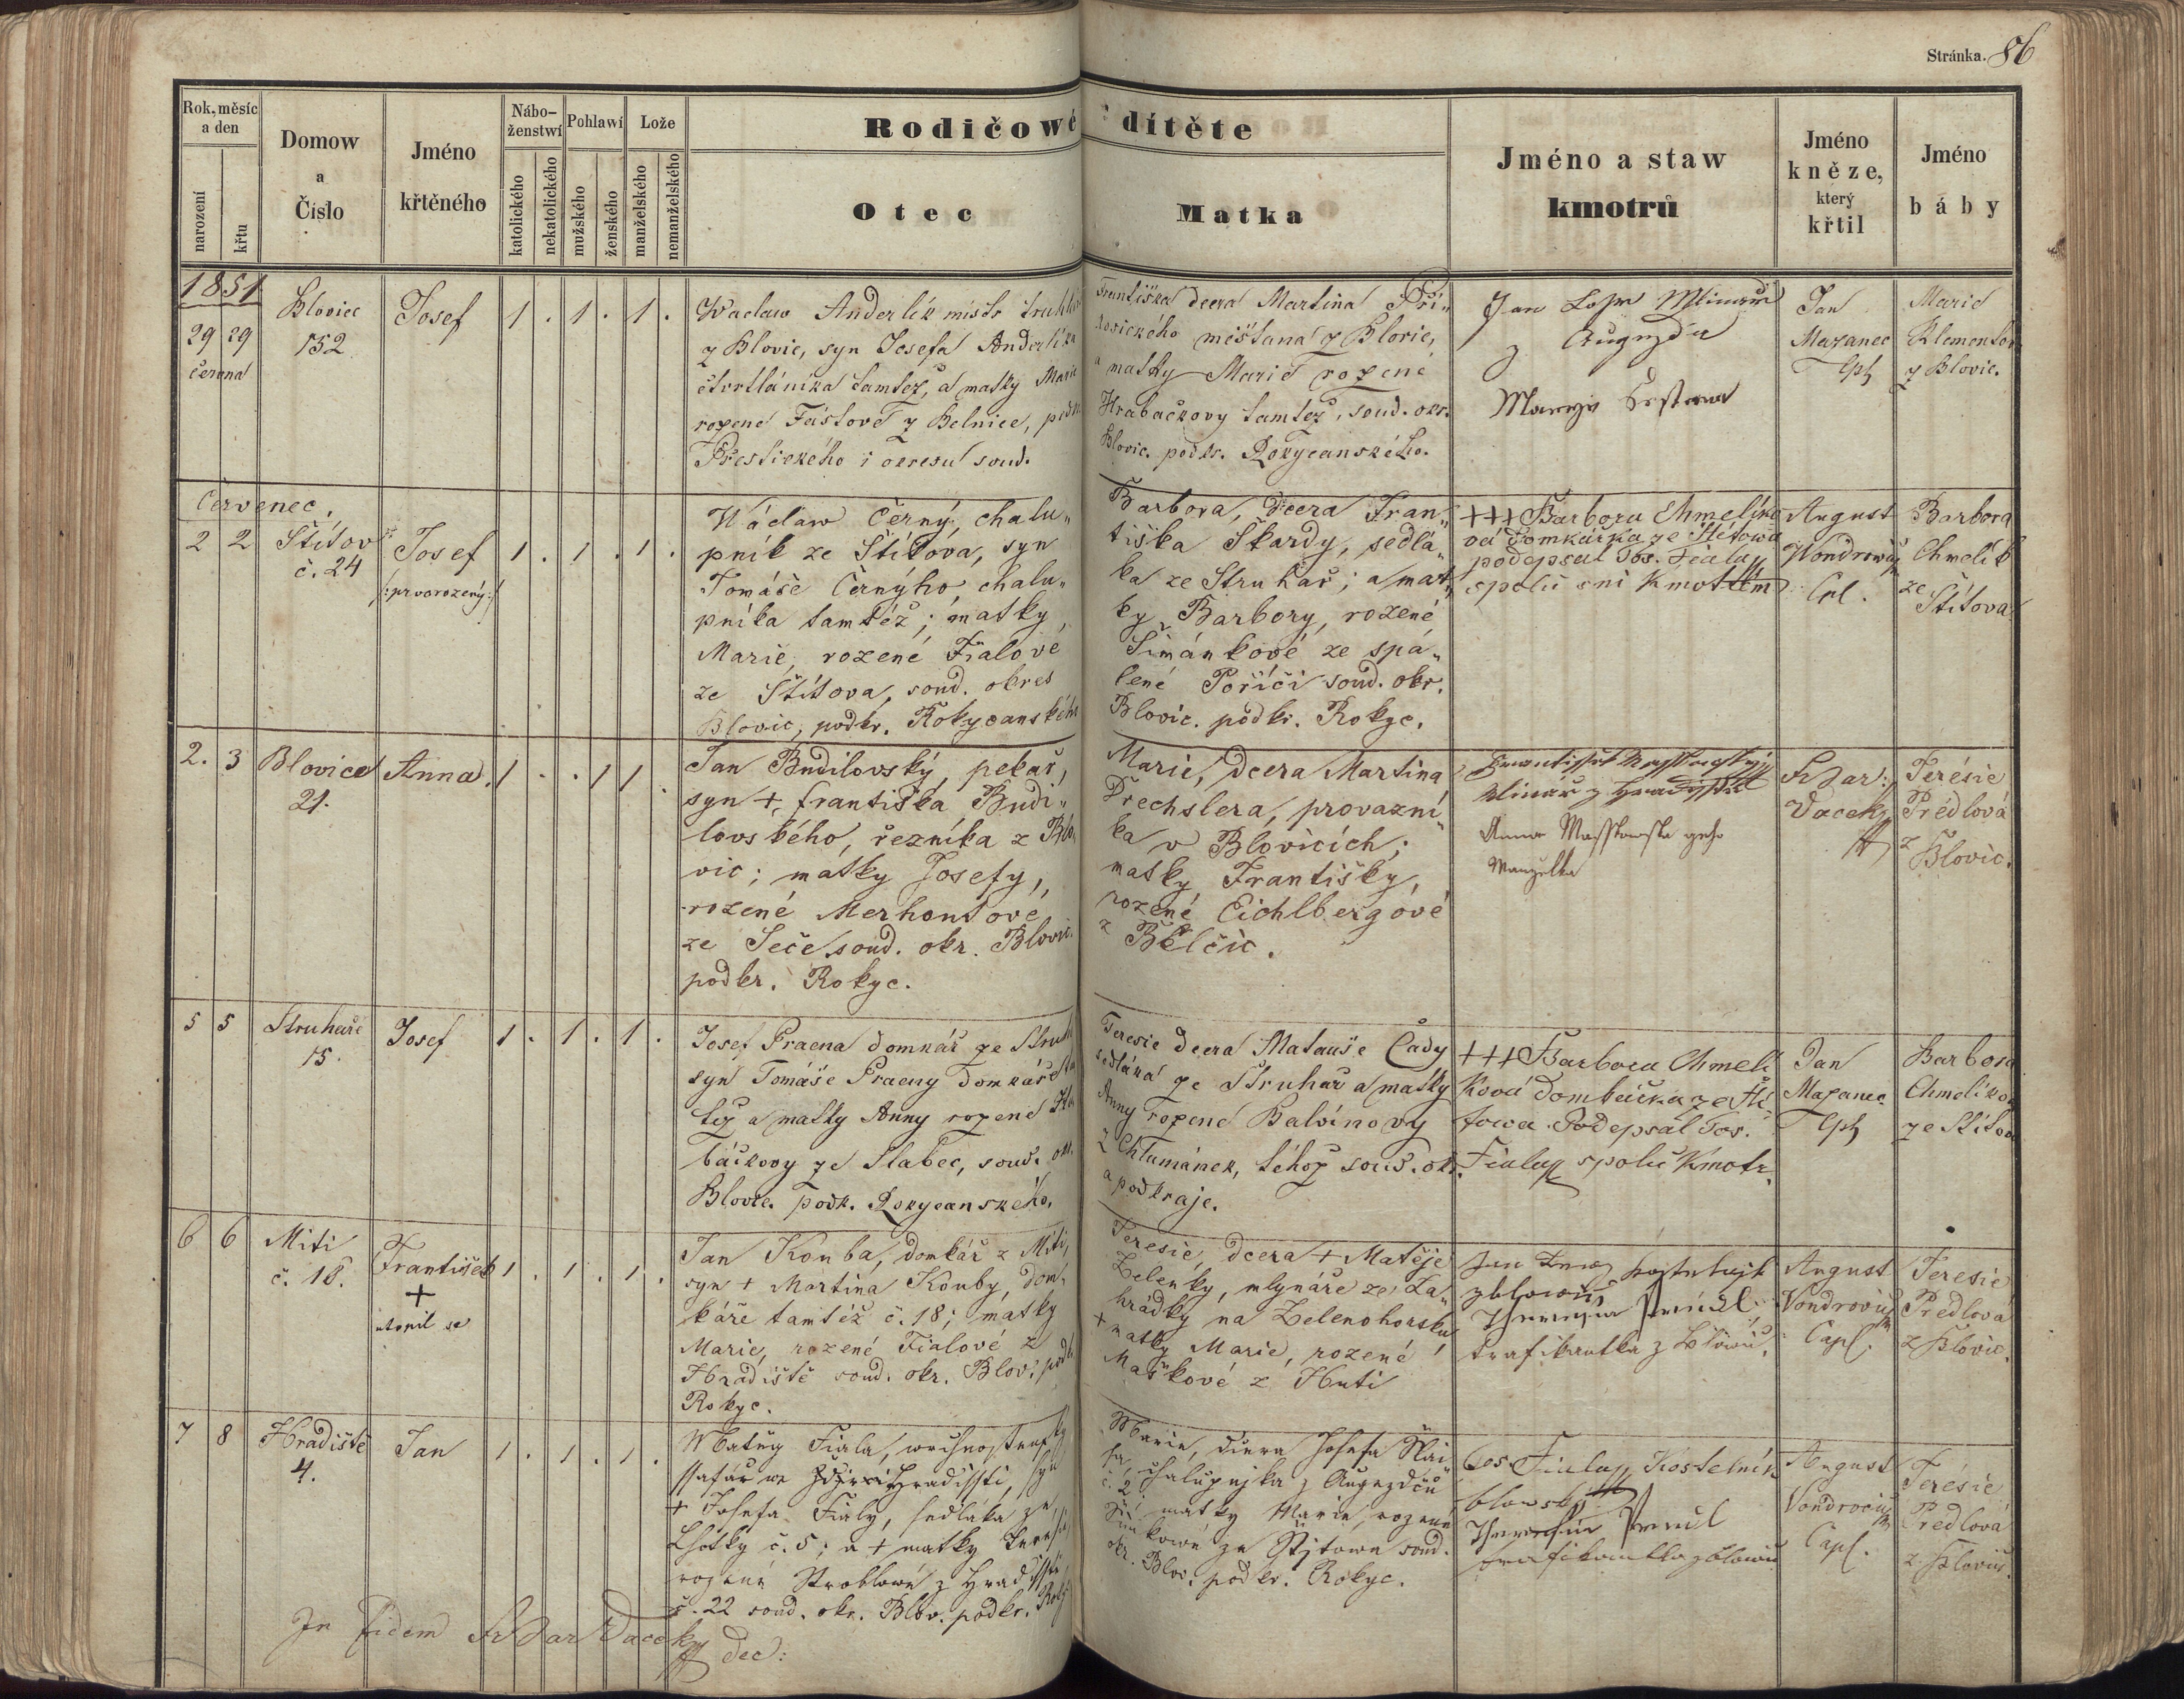 Stránka. 86
Rok, měsíc
a den
narození
křtu
Domow
a
Číslo
Jméno
křtěného
Nábo-
ženstwí
katolického
nekatolického
Pohlawí
mužského
ženského
Lože
manželského
nemanželského
Rodičowé dítěte
Otec
Matka
Jméno a staw
kmotrů
Jméno
kněze,
který
křtil
Jméno
báby
1851
29 29
června
Blovice
152
Josef
1 . 1 . 1 .
Waclaw Anderlík mistr truhlář
z Blovic, syn Josefa Anderlíka
čtvrtláníka tamtéž, a matky Marie
rozené Fástové z Belnice, podk.
Přestického i okresu soud.
Františka dcera Martina Při-
kovického měšťana z Blovic,
a matky Marie rozené
Hrabačkovy tamtéž, soud. okr.
Blovic. podkr. Rokycanského.
Jan
z Augezda
Jan
Mazanec
Cpl
Marie
Klementov
z Blovic.
Červenec.
2 2
Štítov
č. 24
Josef
/:prvorozený:/
1 . 1 . 1 .
Wáclaw Černý, chalu-
pník ze Štítova, syn
Tomáše Černýho, chalu-
pníka tamtéž; matky
Marie, rozené Fialové
ze Štítova, soud. okres
Blovic, podkr. Rokycanského
Barbora, dcera Fran-
tiška Škardy, sedlá-
ka ze Struhař; a mat-
ky Barbory, rozené
Šimánkové ze Spá-
lené Poříči soud. okr.
Blovic. podkr. Rokyc.
+++ Barbora Chmelíko
vá Domkářka ze Štítowa
podepsal Jos. Fiala
spolu sní Kmotrem
August
Wondrowic
Cpl.
Barbora
Chmelík
ze
Štítova
2. 3
Blovice
21.
Anna.
1 . . 1 1 .
Jan Budilovský, pekař,
syn + františka Budi-
lovského, řezníka z Blo-
vic; matky Josefy,
rozené Merhoutové
ze Seče soud. okr. Blovic.
podkr. Rokyc.
Marie, dcera Martina
Drechslera, provazní-
ka v Blovicích;
matky Františky,
rozené Eichlbergové
z Bělčic.
Anna Masstowska geho
Manzelka
Fr Jar:
Vacek
Terésie
Prédlová
z
Blovic.
5 5
Struhaře
15.
Josef
1 . 1 . 1 .
Josef Pracna domkář ze Struh
syn Tomáše Pracny domkáře tam
též a matky Anny rozené
báčkovy ze Slabec, soud. okr.
Blovic. podk. Rokycanského.
Teresie dcera Matauše Čady
sedláka ze Struhař a matky
Anny rozené Balvínovy
z Chlumánek, téhož soud. okr.
a podkraje.
+++ Barbora Chmelí
ková Dombaška ze Ští
towa. Podepsal Jos.
Fiala spolu Kmotr.
Jan
Mazanec
Cpl
Barbora
Chmelíkov
ze Štítova
6 6
Mití
č. 18.
František
+
utopil se
1 . 1 . 1 .
Jan Kouba, domkář z Mití,
syn + Martina Kouby, dom-
káře tamtéž č. 18; matky
Marie, rozené Fialové z
Hradiště soud. okr. Blov. podk.
Rokyc.
Teresie, dcera + Matěje
Zelenky, mlynáře ze Za-
hrádky na Zelenohorsku
+ matky Marie, rozené
Maškové z Huti
trafikantka z Blowic.
August
Vondrovic
Capl.
Teresie
Prédlová
z Blovic.
7 8
Hradiště
4.
Jan
1 . 1 . 1 .
Matěg Fiala, wrchnostensky
ssafář we Hradissti, syn
+ Josefa Fialy, sedláka ze
Lhotky č. 5; a + matky Teresie
rozené Stroblowé z Hradisstě
č. 22 soud. okr. Blov. podkr. Roky
Marie, dcera Josefa
chalupnjka z Augezdcu
č. 2 matky Marie, rozené
kowé ze Sstjtowa soud.
okr. Blov. podkr. Rokyc.
Jos Fiala Kostelník
blowský
trafikantka z Blowic
August
Vondrovic
Capl.
Terésie
Prédlová
z Blovic.
In fidem Fr Jar Vacek
dec: